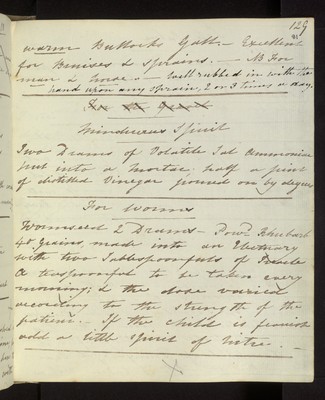 129
warm Bullocks Gall. – Excellent
for Bruises & Sprains. – NB For
man & horse. – well rubbed in with the
hand upon any sprain, 2 or 3 times a day.
Mindererus Spirit
Two Drams of Volatile Sal Ammoniac
put into a Mortar, half a pint
of distilled Vinegar poured on by degrees
For Worms
Wormseed 2 Drams – Powd Rhubarb
40 grains, made into an Electuary
with two Tablespoonfuls of Treacle
A teaspoonful to be taken every
morning; & the dose varied
according to the strength of the
patient. – If the child is feverish
add a little spirit of nitre. –